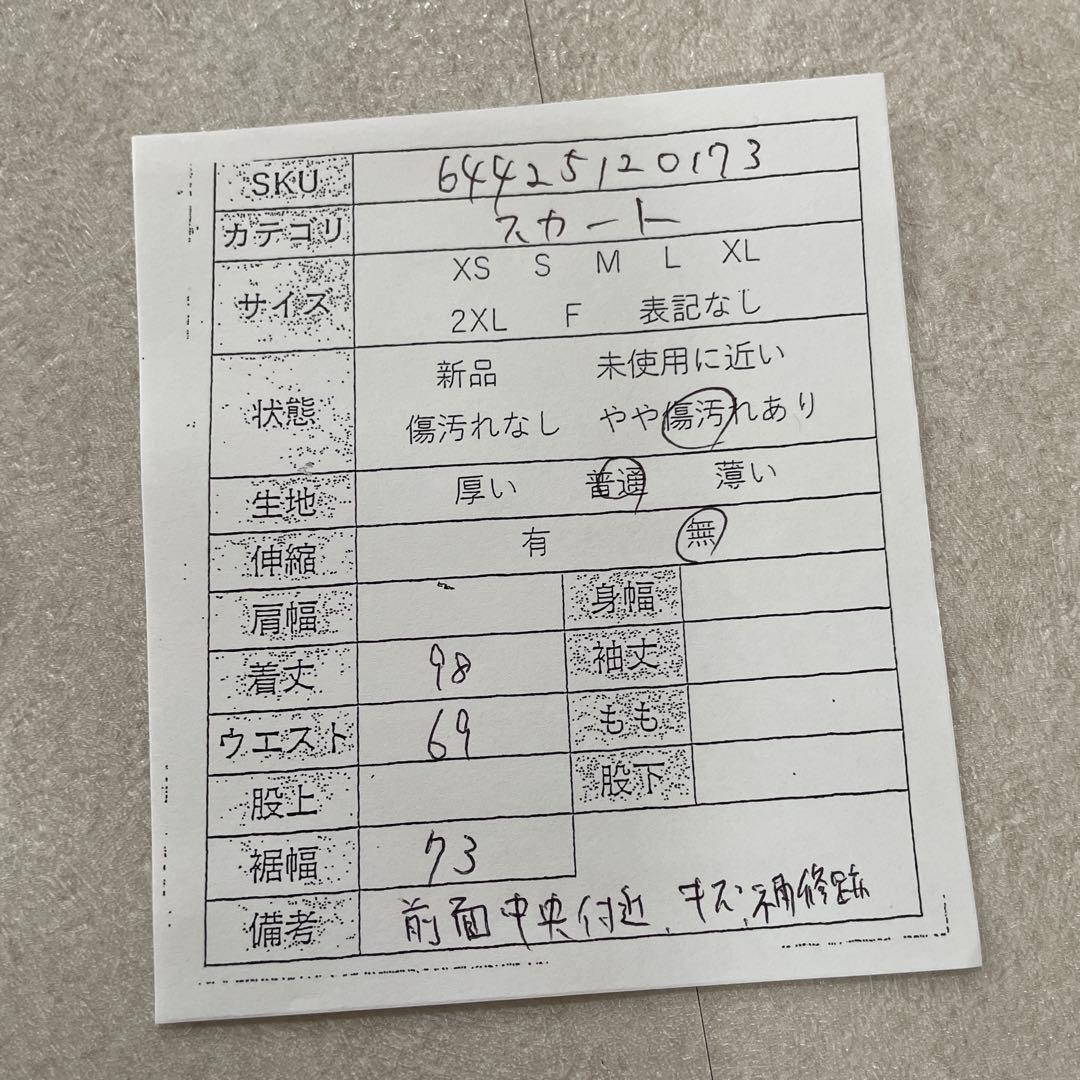 SKU 64425120173
カテゴリ スカート
サイズ XS S M L XL
2XL F 表記なし
状態 新品 未使用に近い
傷汚れなし やや傷汚れあり
生地 厚い 普通 薄い
伸縮 有 無
肩幅 身幅
着丈 98 袖丈
ウエスト 69 もも
股上 股下
裾幅 73
備考 前面中央付近、キズ、補修跡